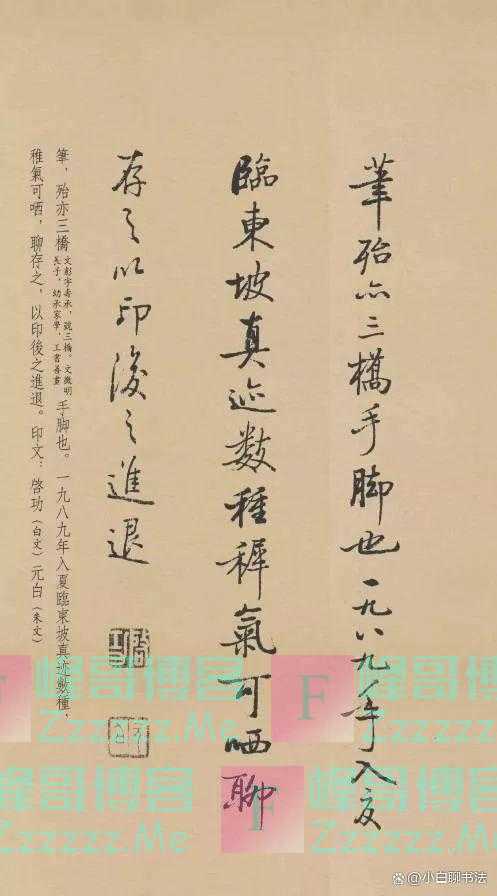 筆殆亦三橋手脚也一九八九年入夏
臨東坡真迹数種稺氣可哂聊
存之以印後之進退
啓功
元白
筆，殆亦三橋文彭字壽承，號三橋。文徵明長子，幼承家學，工書善畫手脚也。一九八九年入夏臨東坡真迹數種，
稚氣可哂，聊存之，以印後之進退。印文：啓功（白文）元白（朱文）
峰哥博客
Zzzzzz.Me
F
峰哥博客
Zzzzzz.Me
峰哥博客
Zzzzzz.Me
F
峰哥博客
Zzzzzz.Me
小白聊书法